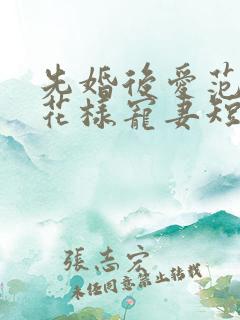 先婚後愛范
花樣寵妻短
張志宏
未任同意禁止转載